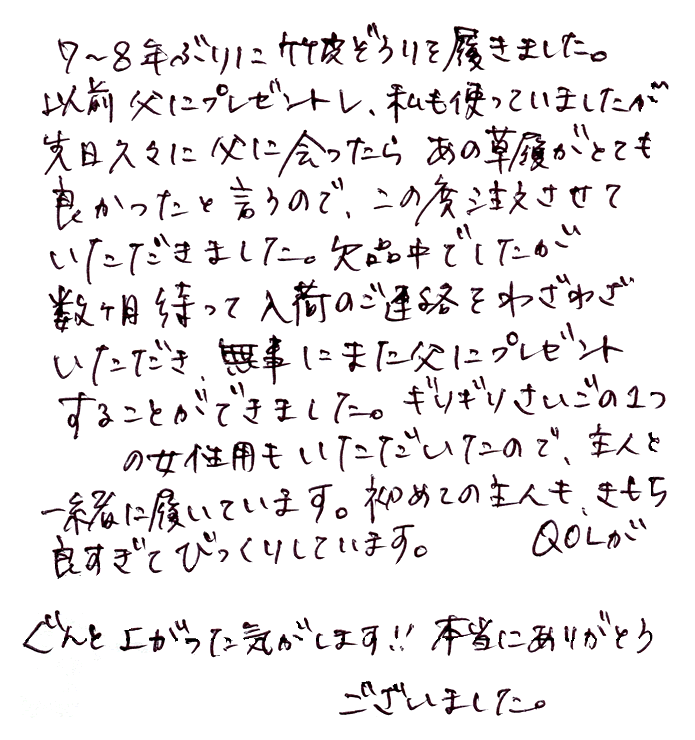 7〜8年ぶりに竹皮ぞうりを履きました。
以前父にプレゼントし、私も使っていましたが
先日久々に父に会ったらあの草履がとても
良かったと言うので、この度注文させて
いただきました。欠品中でしたが
数ヶ月待って入荷のご連絡をわざわざ
いただき、無事にまた父にプレゼント
することができました。ギリギリさいごの1つ
の女性用もいただいたので、主人と
一緒に履いています。初めての主人も、きもち
良すぎてびっくりしています。 QOLが
ぐんと上がった気がします!! 本当にありがとう
ございました。